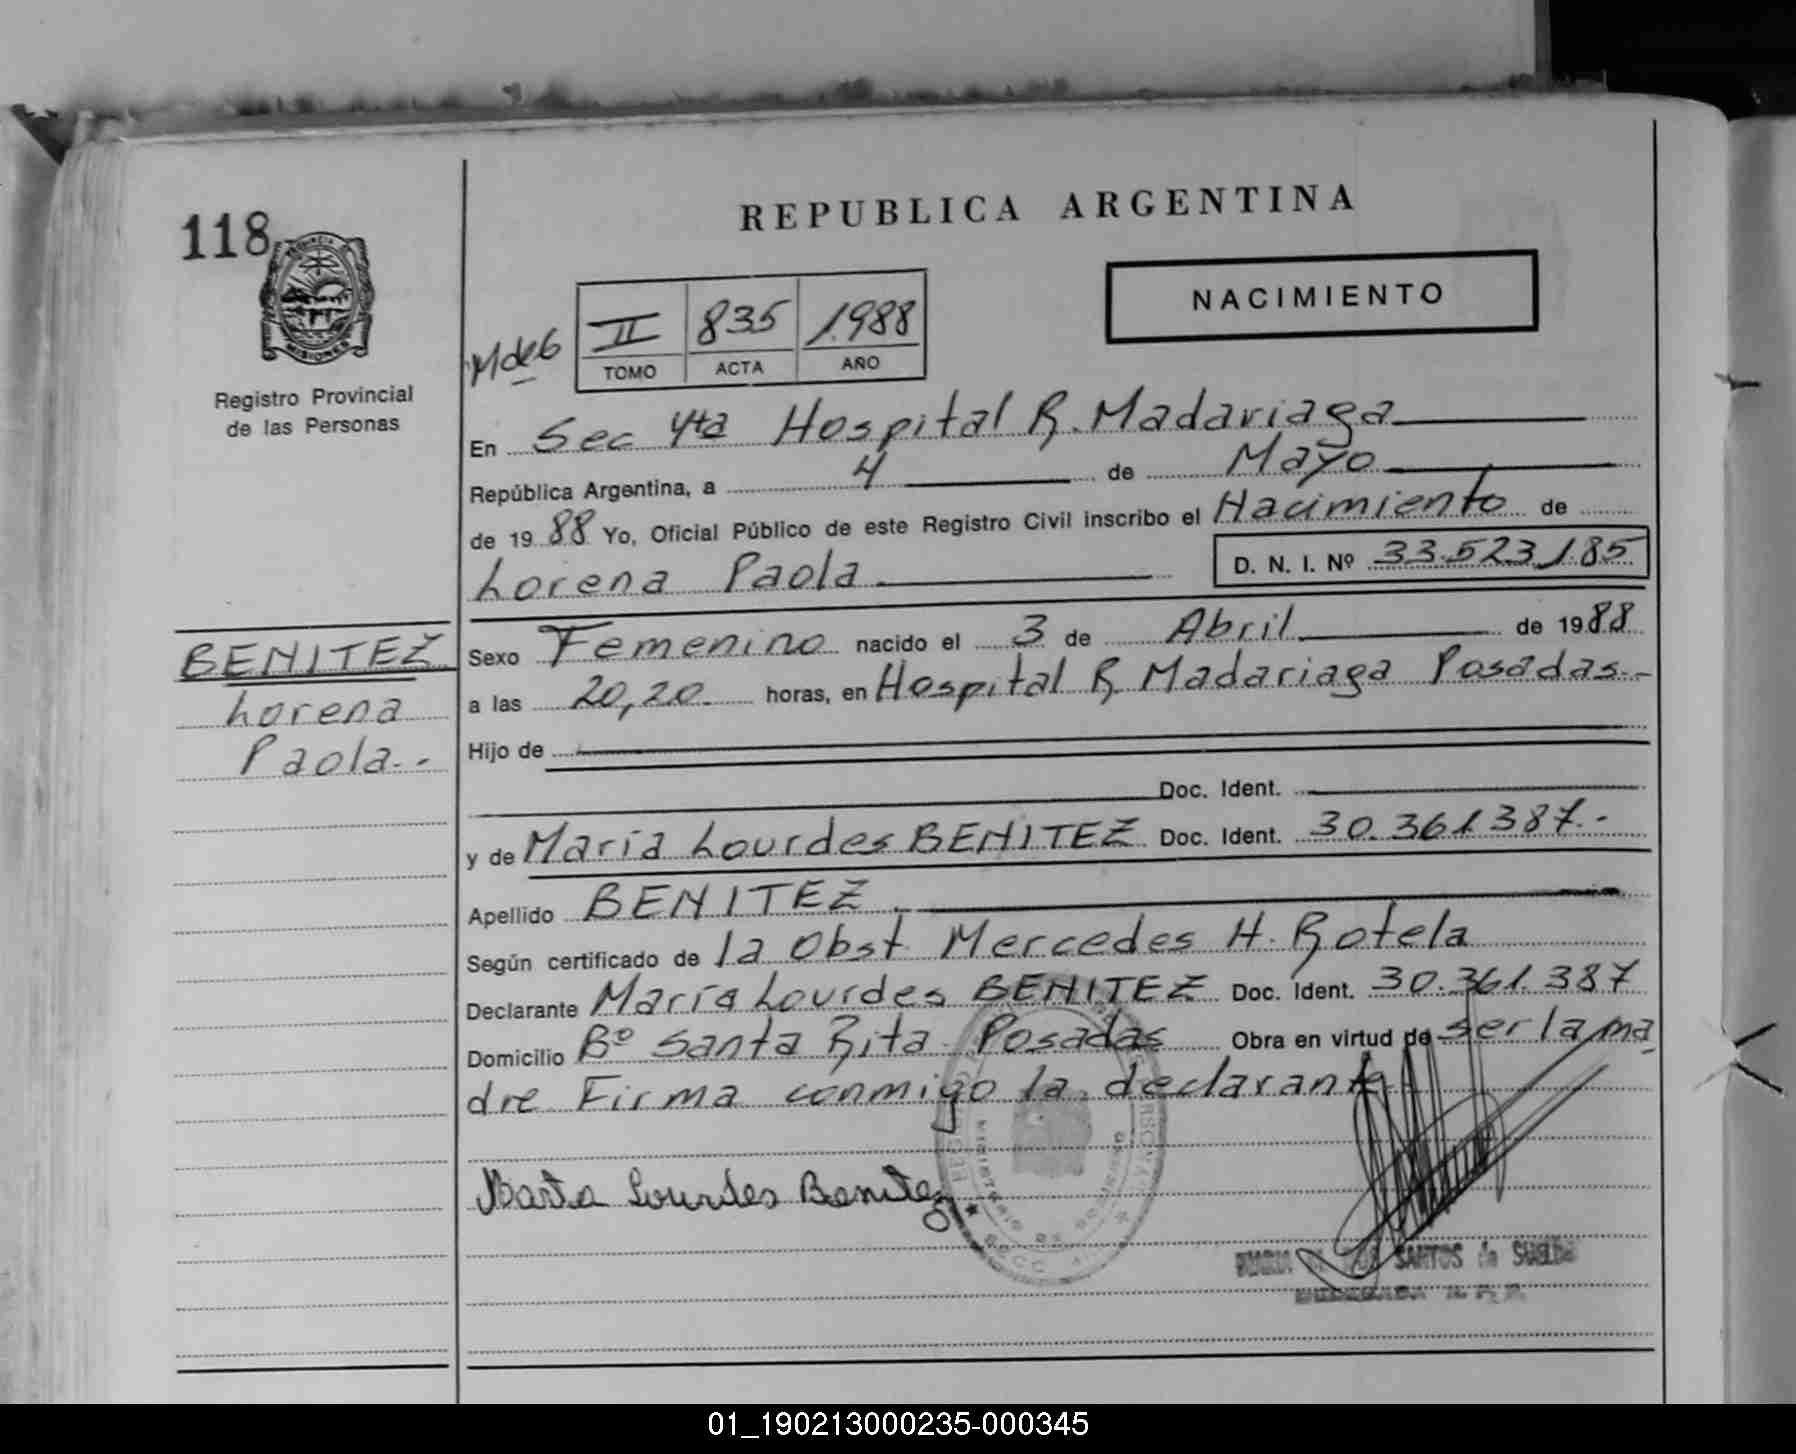 118
REPUBLICA ARGENTINA
NACIMIENTO
II 835 1988
TOMO ACTA AÑO
MISIONES
Registro Provincial
de las Personas
En Sec 4ta Hospital R. Madariaga
República Argentina, a 4 de Mayo
de 1988 Yo, Oficial Público de este Registro Civil inscribo el Nacimiento de
Lorena Paola D. N. I. Nº 33.523.185
BENITEZ
Lorena
Paola.-
Sexo Femenino nacido el 3 de Abril de 1988
a las 20,20. horas, en Hospital R. Madariaga Posadas.-
Hijo de
Doc. Ident.
y de María Lourdes BENITEZ Doc. Ident. 30.361.387.-
Apellido BENITEZ.
Según certificado de la Obst Mercedes H. Rotela
Declarante María Lourdes BENITEZ Doc. Ident. 30.361.387
Domicilio Bº Santa Rita Posadas Obra en virtud de ser la ma
dre Firma conmigo la declarante
Maria Lourdes Benitez
SANTOS de
01_190213000235-000345